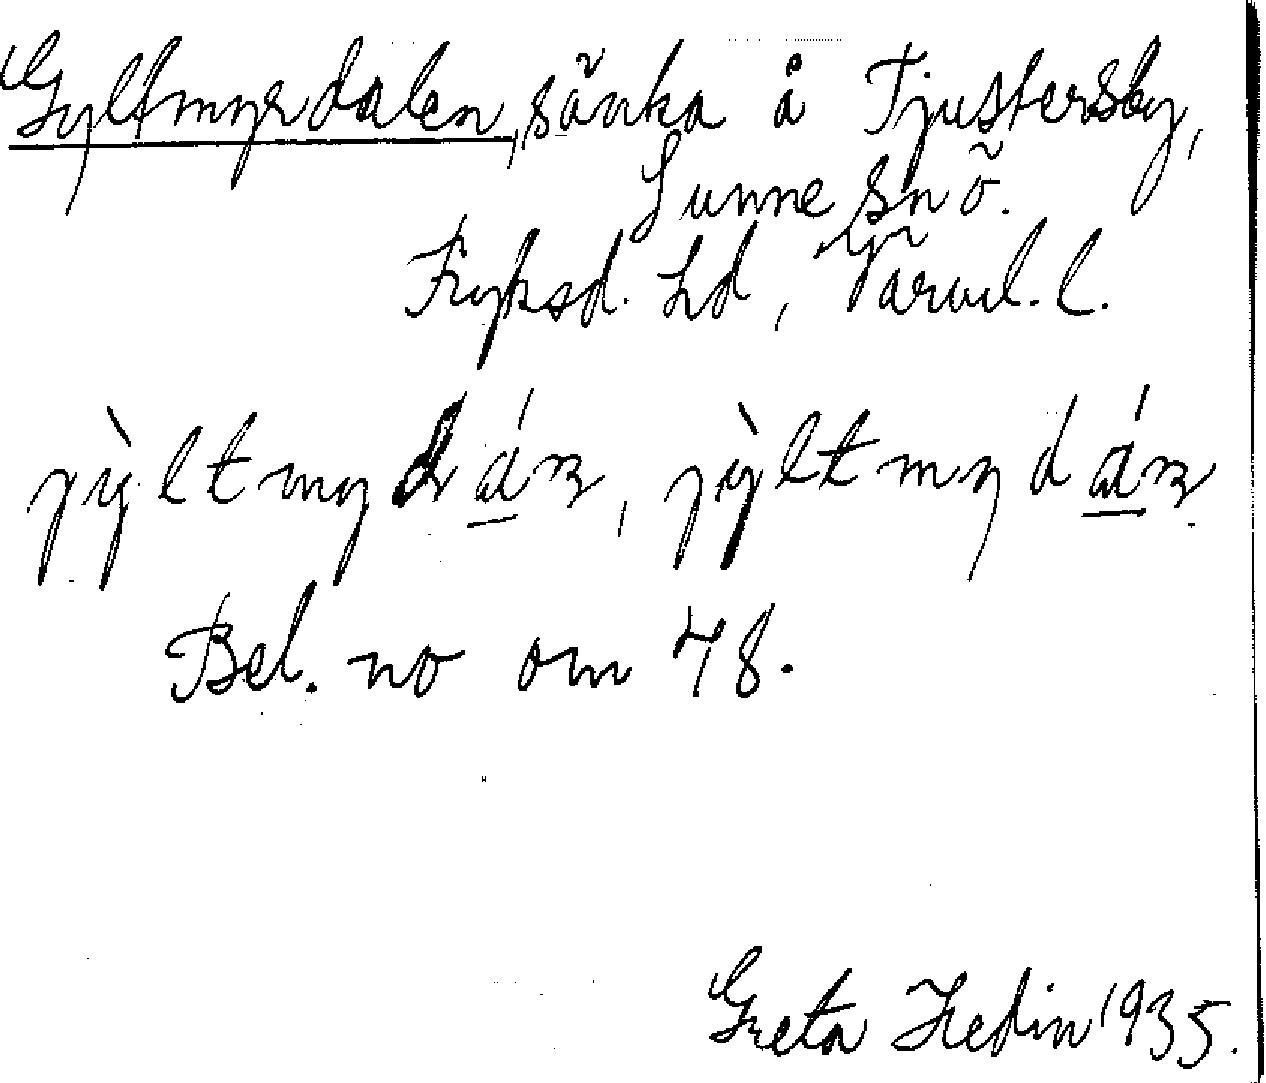 Gyltmyrdalen, sänka å Tjustersby,
Sunne sn ö.
Fryksd. hd, Värml. l.
jỳltmydáɳ, jỳltmydáɳ
Bel. no om 78.
Greta Hedin 1935.